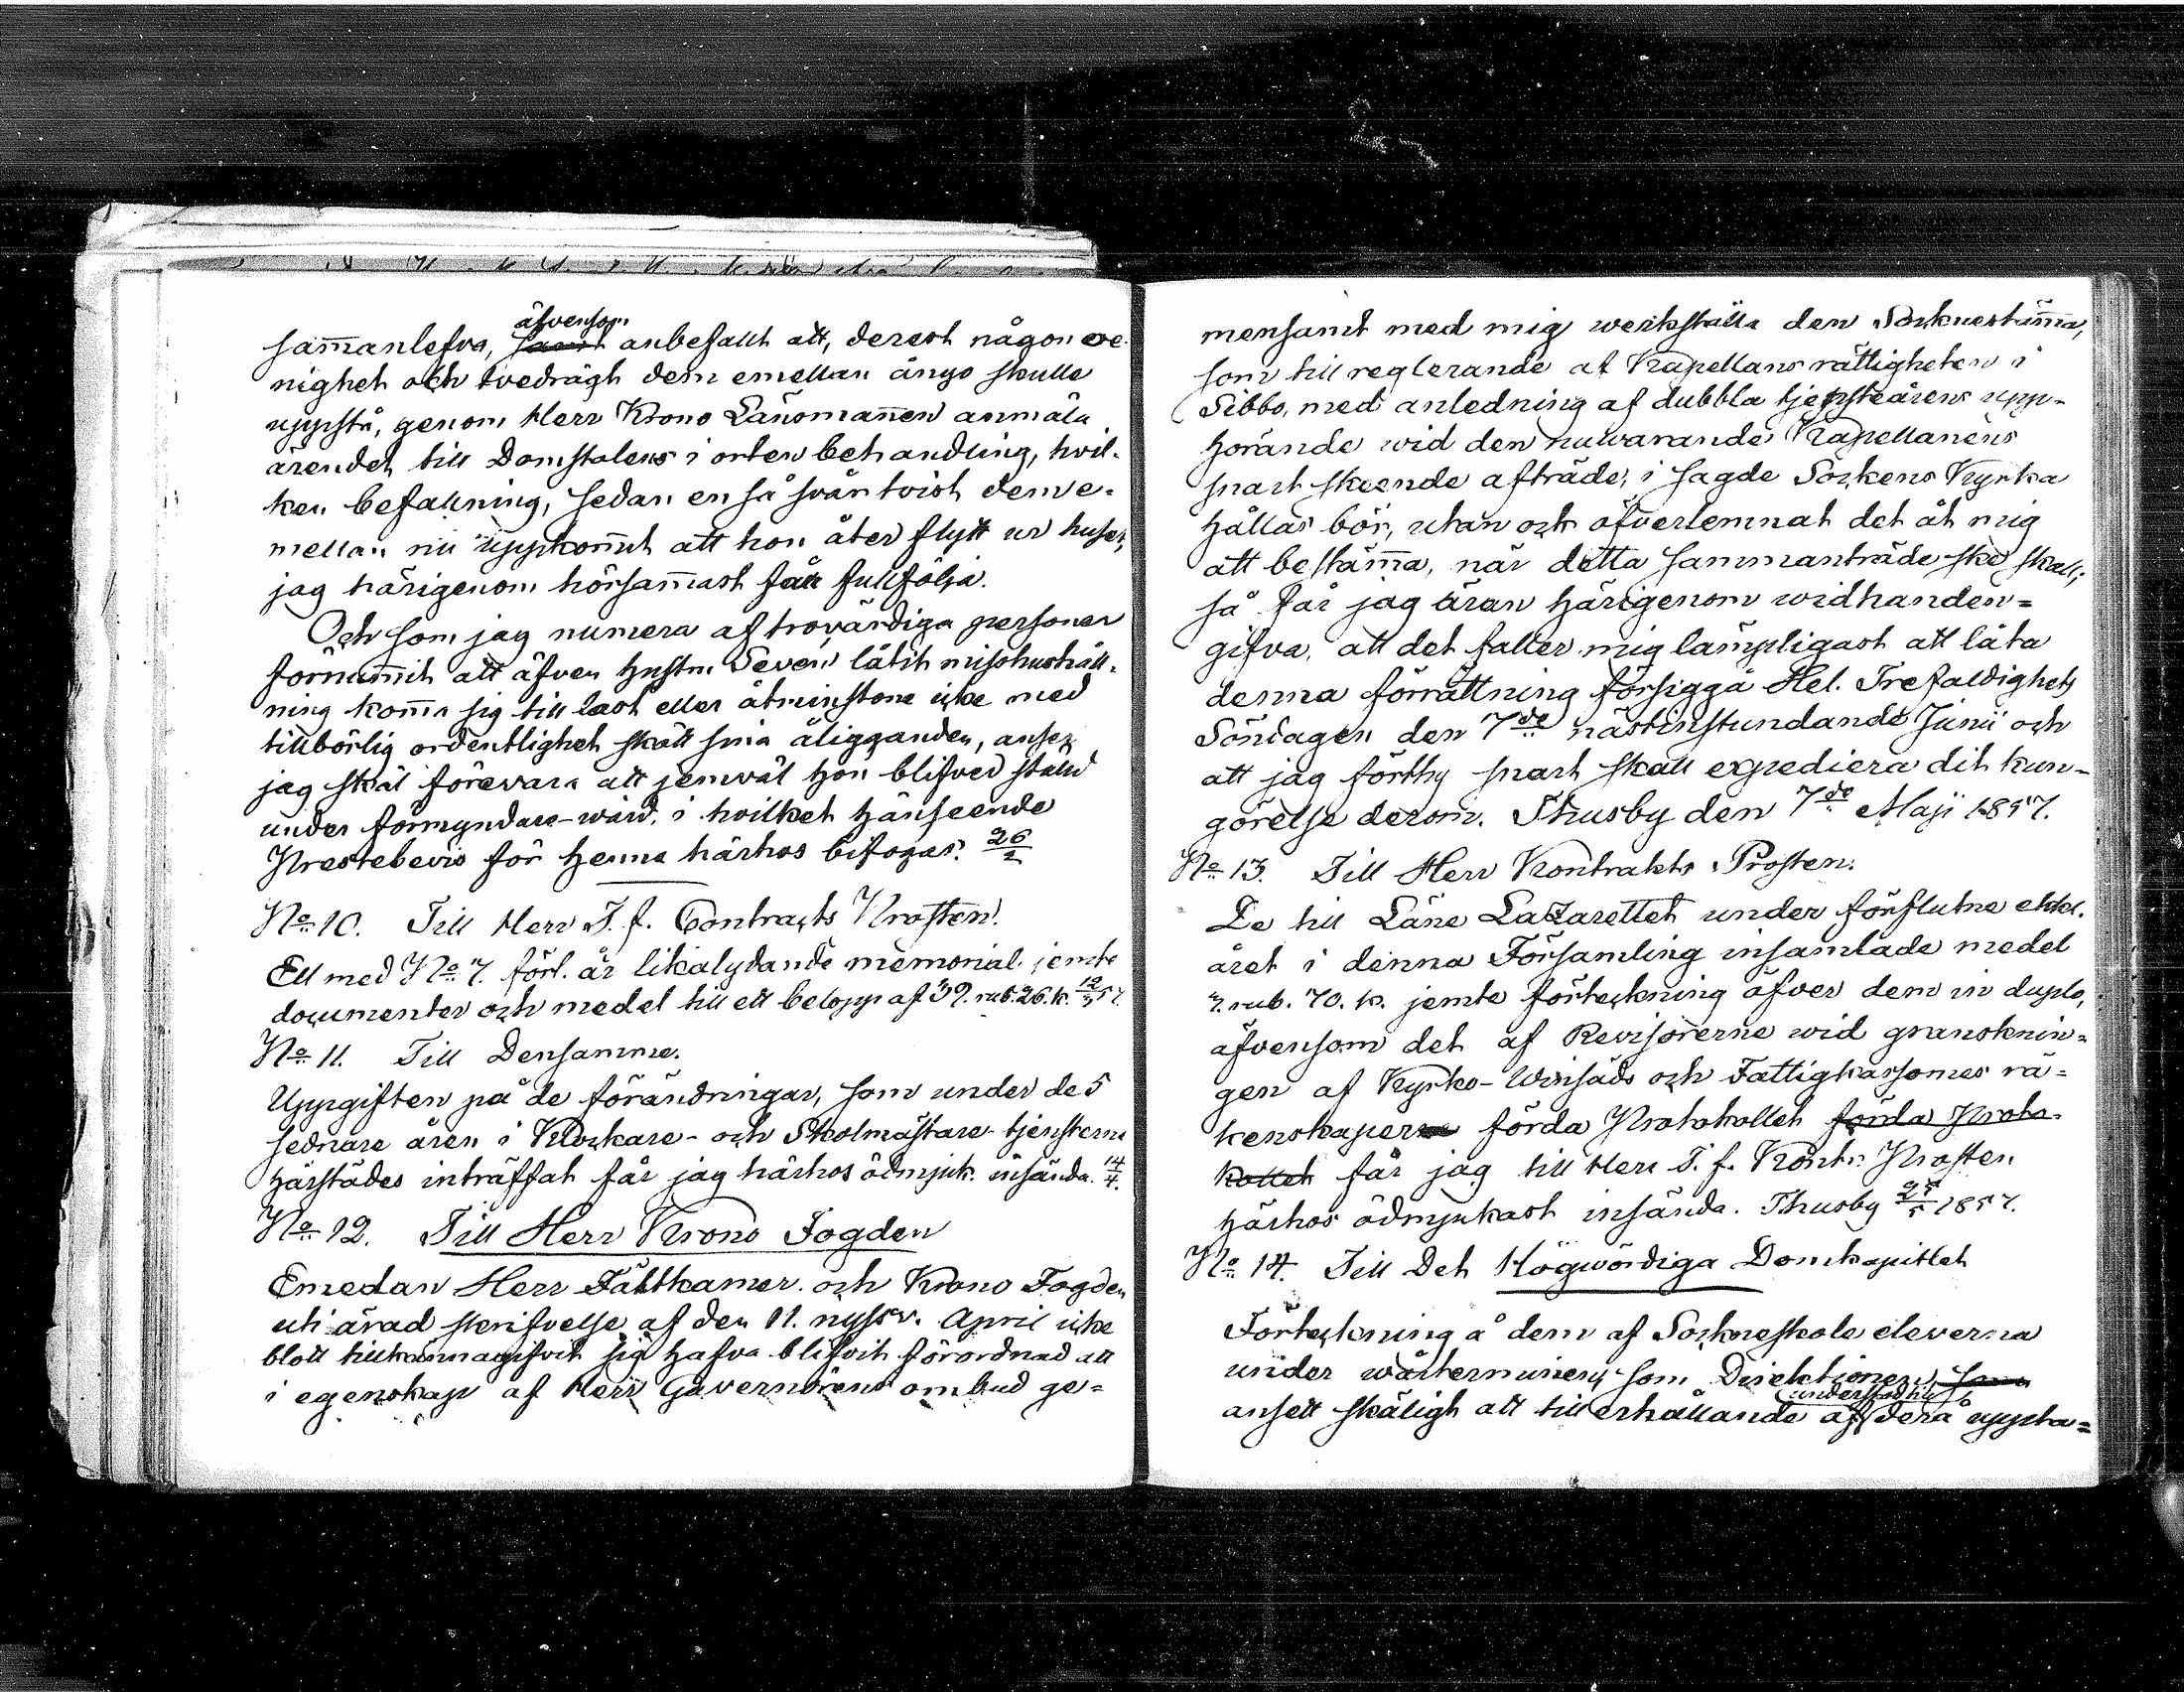 äfvensom
sam̄anlefva, samt anbefallt att, derest någon oe-
nighet och tvedrägt dem emellan ånyo skulle
uppstå, genom Herr Krono Länsmannen anmäla
ärendet till Domstolens i orten behandling, hvil-
ken befallning, sedan en så svår tvist dem e-
mellan nu uppkom̄it att hon åter flytt ur huset,
jag härigenom hörsam̄ast får fullfölja.
Och som jag numera af trovärdiga personer
förnum̄it att äfven hustru Seven låtit misshushåll-
ning kom̄a sig till last eller åtminstone icke med
tillbörlig ordentlighet skött sina åligganden, anser
jag skäl förevara att jemväl hon blifver ställd
under förmyndare-wård, i hvilket hänseende
Prestebevis för henne härhos bifogas. 26/2
No 10. Till Herr T. f. Contracts Prosten.
Ett med No 7. förl. år likalydande memorial jemte
documenter och medel till ett belopp af 39. rub. 26. k. 12/3 57.
No 11. Till Densamme.
Uppgiften på de förändringar, som under de 5
sednare åren i Klockare- och Skolmästare-tjensterne
härstädes inträffat får jag härhos ödmjuk. insända. 14/4.
No 12. Till Herr Krono Fogden
Emedan Herr Fältkamer. och Krono Fogden
uti ärad skrifvelse af den 11. nyssv. April icke
blott tillkännagifvit sig hafva blifvit förordnad att
i egenskap af Herr Guvernörens ombud ge=
mensamt med mig werkställa den Sockenestäm̄a,
som till reglerande af Kapellans rättigheten i
Sibbo, med anledning af dubbla tjensteårens upp-
hörande wid den nuwarande Kapellanens
snart skeende afträde, i sagde Sockens Kyrka
hållas bör, utan ock öfverlemnat det åt mig
att bestäm̄a, när detta sammanträde ske skall;
så får jag äran härigenom widhanden=
gifva, att det faller mig lämpligast att låta
denna förrättning försiggå Hel. Trefaldighets
Söndagen den 7de nästinstundande Junii och
att jag förthy snart skall expediera dit kun-
görelse derom. Thusby den 7de Maji 1857.
No 13. Till Herr Kontrakts Prosten.
De till Läns Lazarettet under förflutne ekkl.
året i denna Församling insamlade medel
rub. 70. k. jemte förteckning öfver dem in duplo,
äfvensom det af Revisorerne wid gransknin=
gen af Kyrko- Winsäds och Fattigkassornes rä=
kenskaper förda Protokollet förda Proto-
kollet får jag till Herr T. f. Kontr. Prosten
härhos ödmjukast insända. Thusby 25/5 1857.
No 14. Till Det Högwördiga Domkapitlet
Förteckning å dem af Sockneskole eleverna
under wårterminen, som Direktionen
understöd
ansett skäligt att till erhållande af derå uppta=